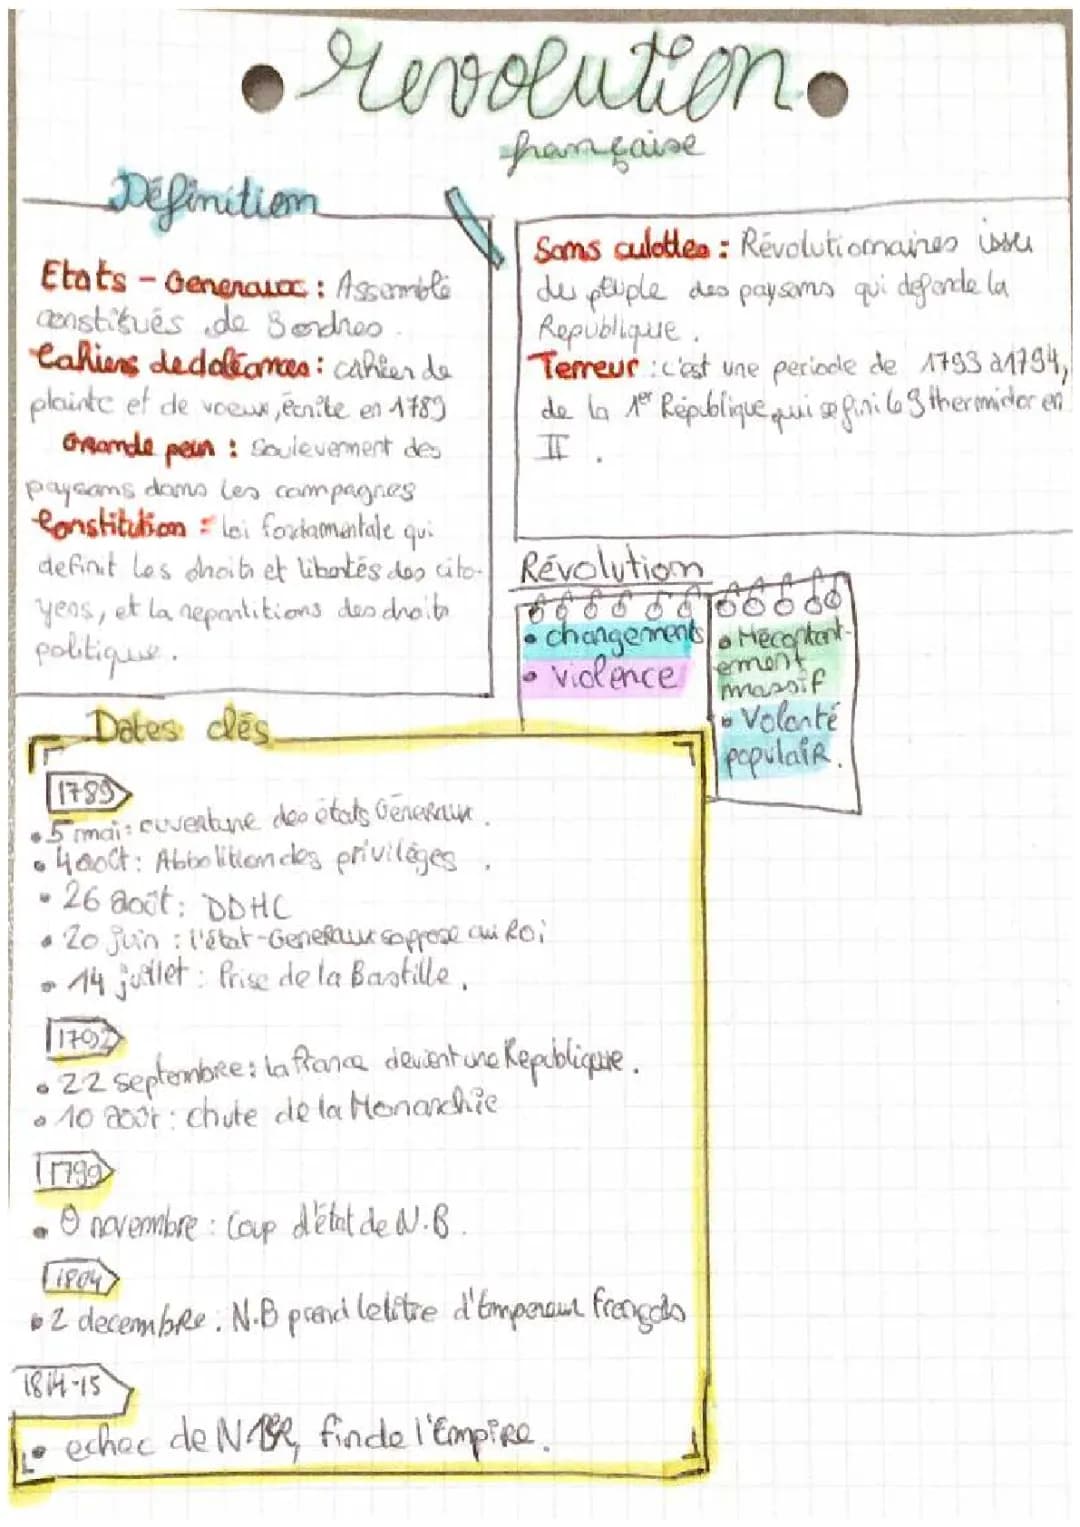 revolution
française
Définition
Etats - Generaux : Assemblé
constitués de 3 ordres.
Cahiers de doléances : cahier de
plainte et de voeux, écrite en 1789
Grande peur : Soulevement des
paysans dans les campagnes
Constitution : loi fondamentale qui
definit les droits et libertés des cito-
yens, et la repartitions des droits
politique.
Sans culottes : Révolutionnaires issu
du peuple des paysans qui defende la
Republique.
Terreur : c'est une periode de 1793 à 1794,
de la 1er République, qui se fini le 9 thermidor en
II.
Révolution
• changements
• violence
• Mecontent-
ement
massif
• Volonté
populaiR.
Dates clés
1789
• 5 mai : ouverture des états Géneraux.
• 4 août : Abbolition des privilèges.
• 26 août : DDHC
• 20 juin : l'état-Generaux s'oppose au Roi
• 14 juillet : Prise de la Bastille.
1792
• 22 septembre : la france devient une Republique.
• 10 août : chute de la Monarchie
1799
• novembre : Coup d'état de N.B.
1804
• 2 decembre : N.B prend le titre d'Empereur français
1814-15
• echec de fin de l'Empire.